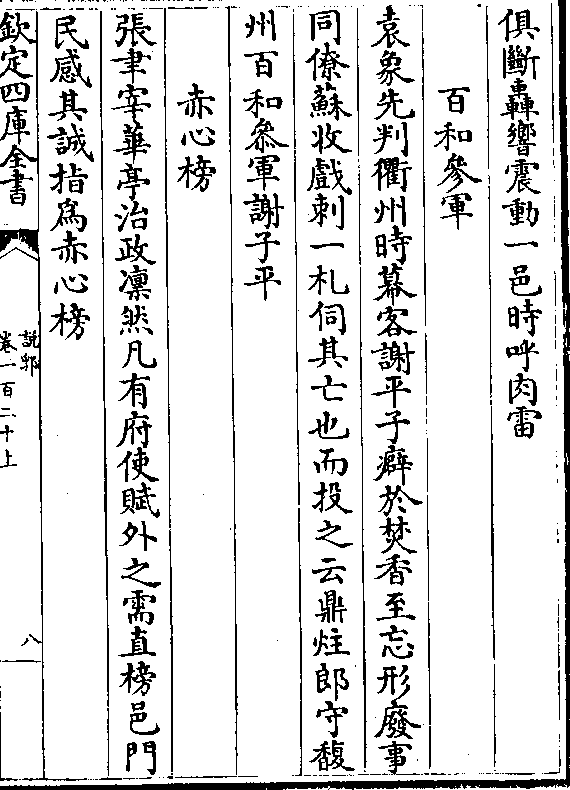 俱斷轟響震動一邑時呼肉雷
百和參軍
袁象先判衢州時幕客謝平子癖於焚香至忘形廢事
同僚蘇收戲刺一札伺其亡也而投之云鼎炷郎守馥
州百和叅軍謝子平
赤心榜
張聿宰華亭治政凛然凡有府使賦外之需直榜邑門
民感其誠指為赤心榜
欽定四庫全書
說郛
卷一百二十上
八